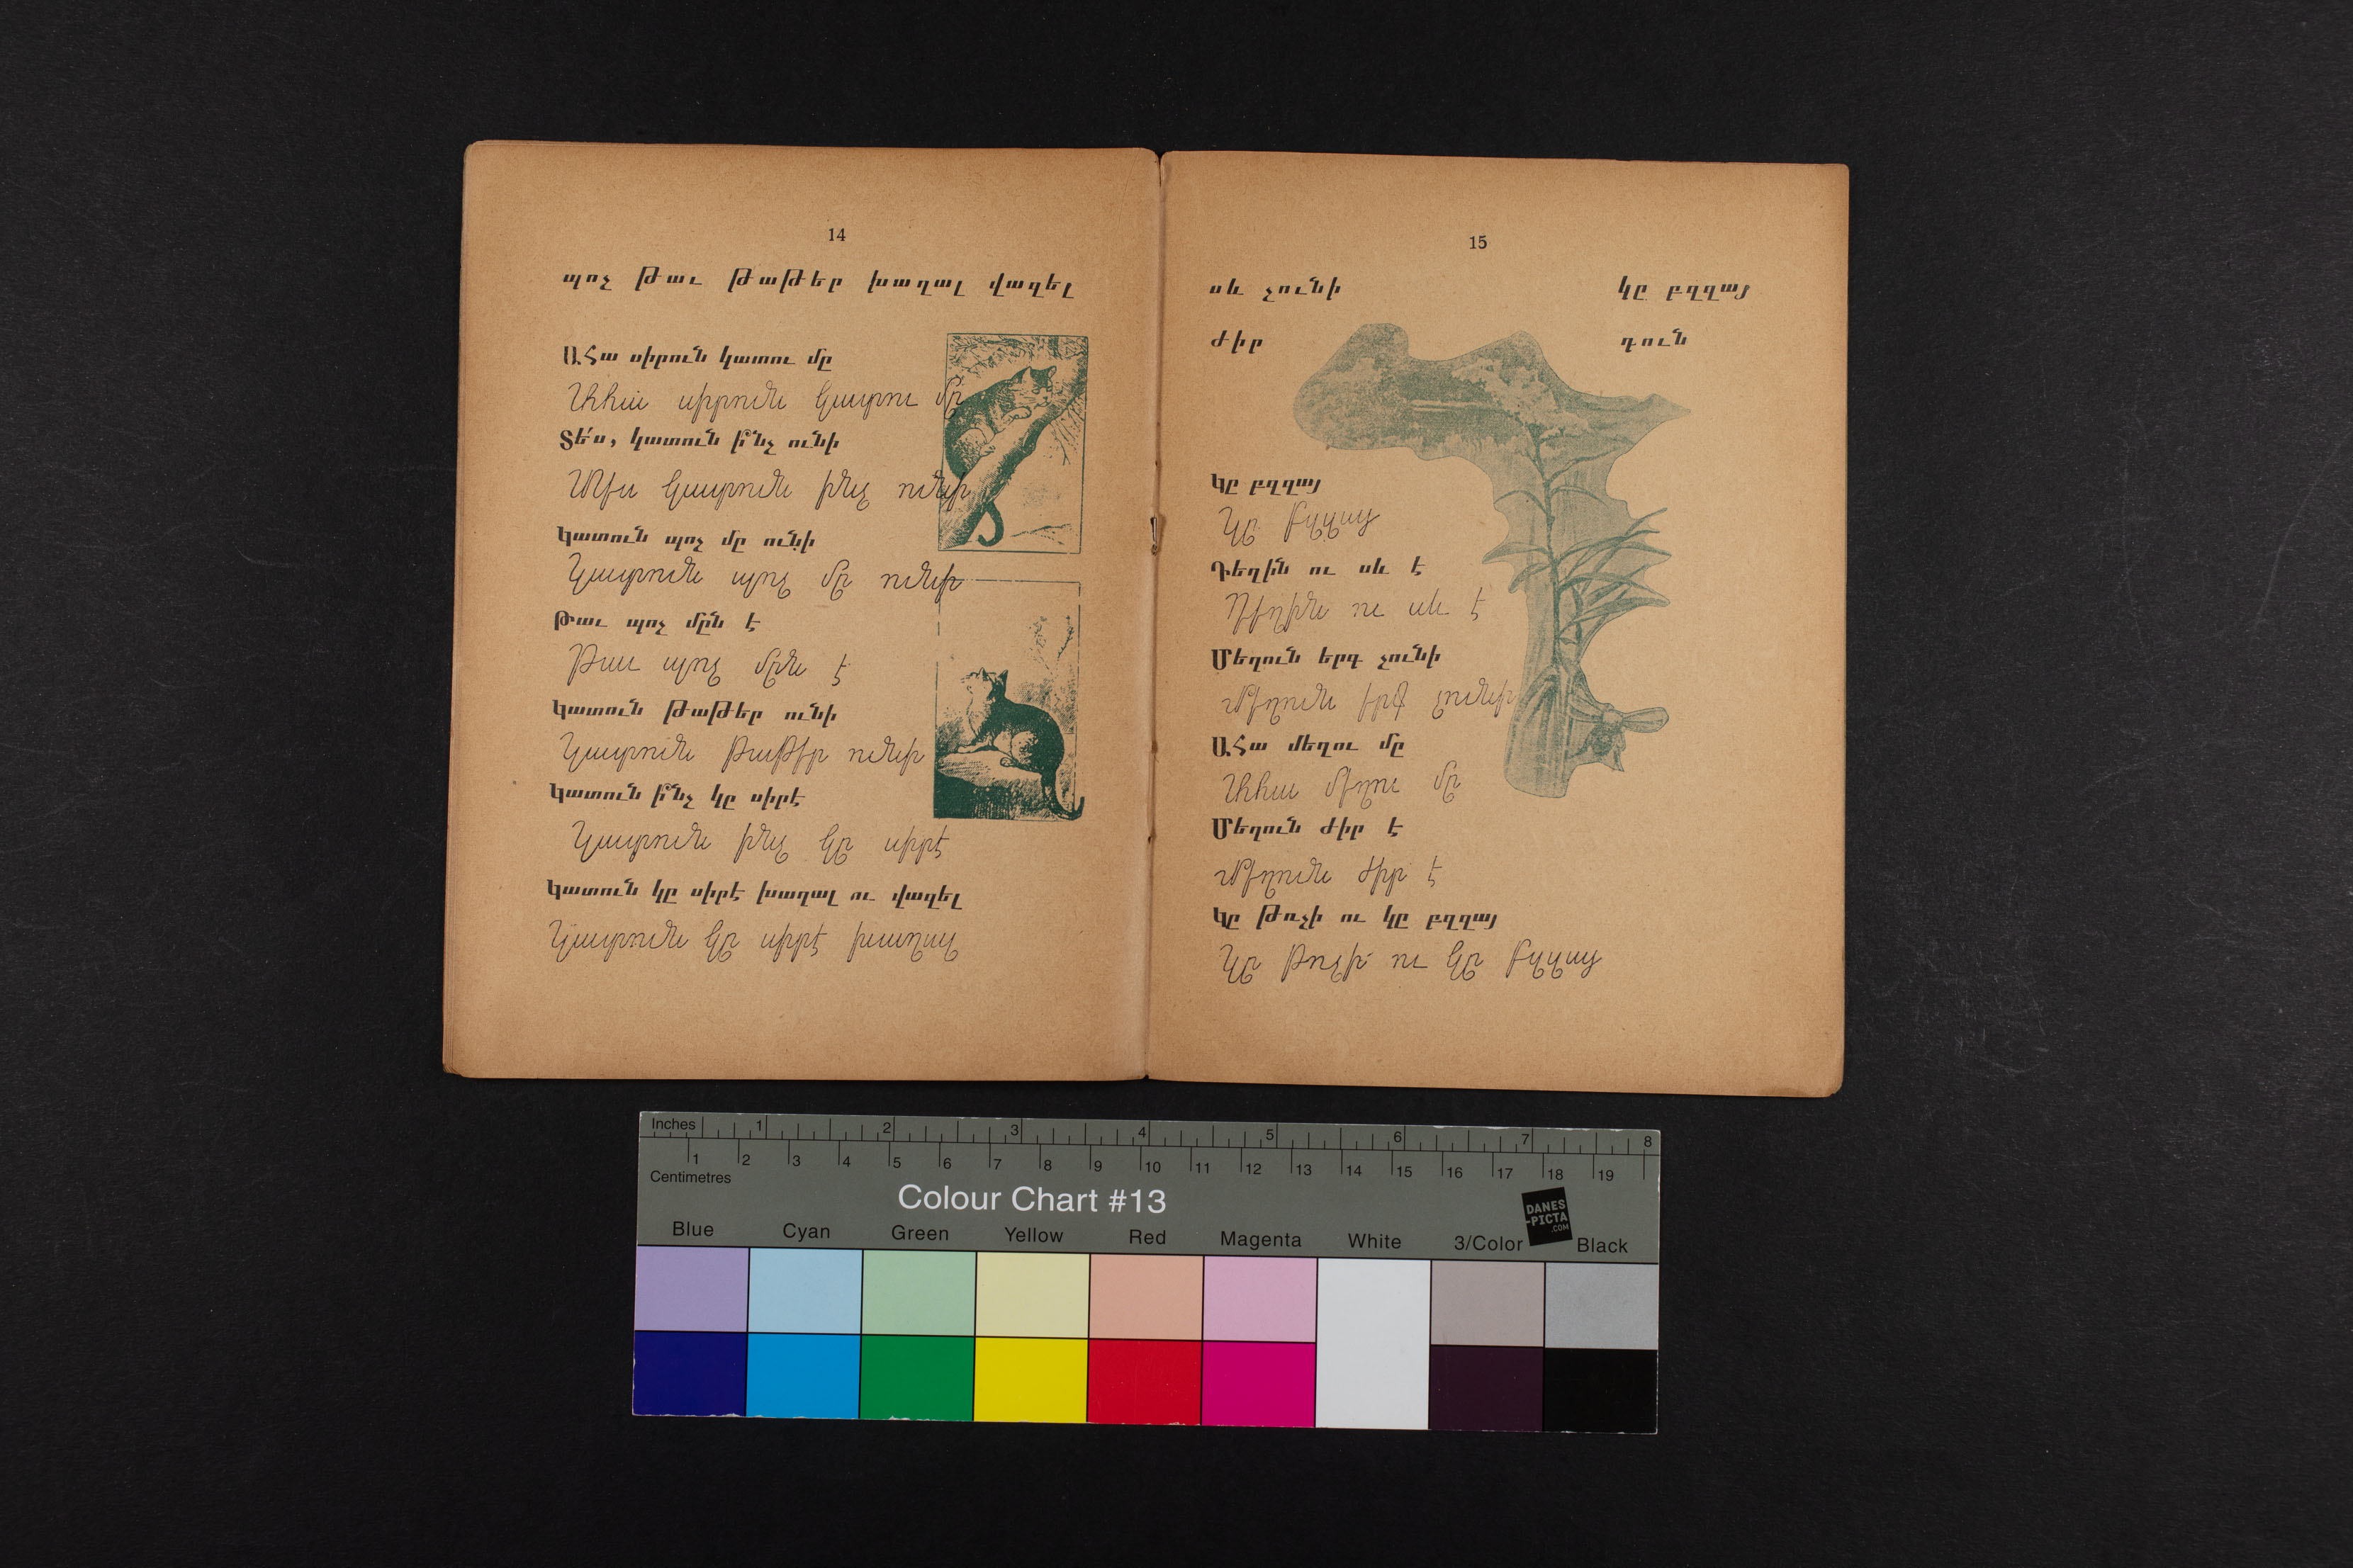 14
պոչ թաւ թաթեր խաղալ վազել
Ահա սիրուն կատու մը
Ահա սիրուն կատու մը
Տե՛ս, կատուն ի՞նչ ունի
Տես կատուն ինչ ունի
Կատուն պոչ մը ունի
Կատուն պոչ մը ունի
Թաւ պոչ մըն է
Թաւ պոչ մըն է
Կատուն թաթեր ունի
Կատուն թաթեր ունի
Կատուն ի՞նչ կը սիրէ
Կատուն ինչ կը սիրէ
Կատուն կը սիրէ խաղալ ու վազել
Կատուն կը սիրէ խաղալ
15
սև չունի կը բզզայ
ժիր դուն
Կը բզզայ
Կը բզզայ
Դեղին ու սև է
Դեղին ու սև է
Մեղուն երգ չունի
Մեղուն երգ չունի
Ահա մեղու մը
Ահա մեղու մը
Մեղուն ժիր է
Մեղուն ժիր է
Կը թռչի ու կը բզզայ
Կը թռչի ու կը բզզայ
Inches 1 2 3 4 5 6 7 8
1 2 3 4 5 6 7 8 9 10 11 12 13 14 15 16 17 18 19
Centimetres
Colour Chart #13
DANES
-PICTA
.COM
Blue Cyan Green Yellow Red Magenta White 3/Color Black